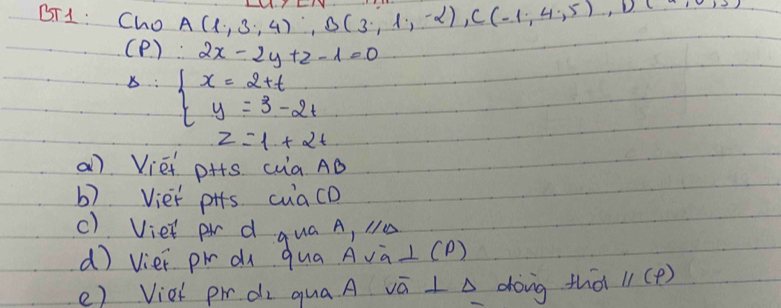 BT1: Cho A(1;3;4), B(3;1;-2), C(-1;4;5), D(
(P): 2x-2y+z-1=0
Δ: { x = 2+t
y = 3-2t
z = 1+2t
a) Viết ptts của AB
b) Viết ptts của CD
c) Viết pt d qua A, //Δ
d) Viết pt d1 qua A và ⊥ (P)
e) Viết pt d2 qua A và ⊥ Δ đồng thời // (P)